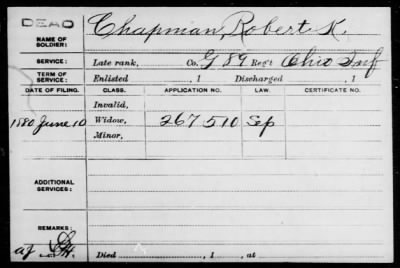 DEAD
NAME OF SOLDIER: Chapman, Robert K.
SERVICE: Late rank, Co. G 89 Reg't Ohio Inf
TERM OF SERVICE: Enlisted , 1 Discharged , 1
DATE OF FILING. CLASS. APPLICATION NO. LAW. CERTIFICATE NO.
Invalid,
1880 June 10 Widow, 267510
Minor,
ADDITIONAL SERVICES:
REMARKS:
Died , 1 , at